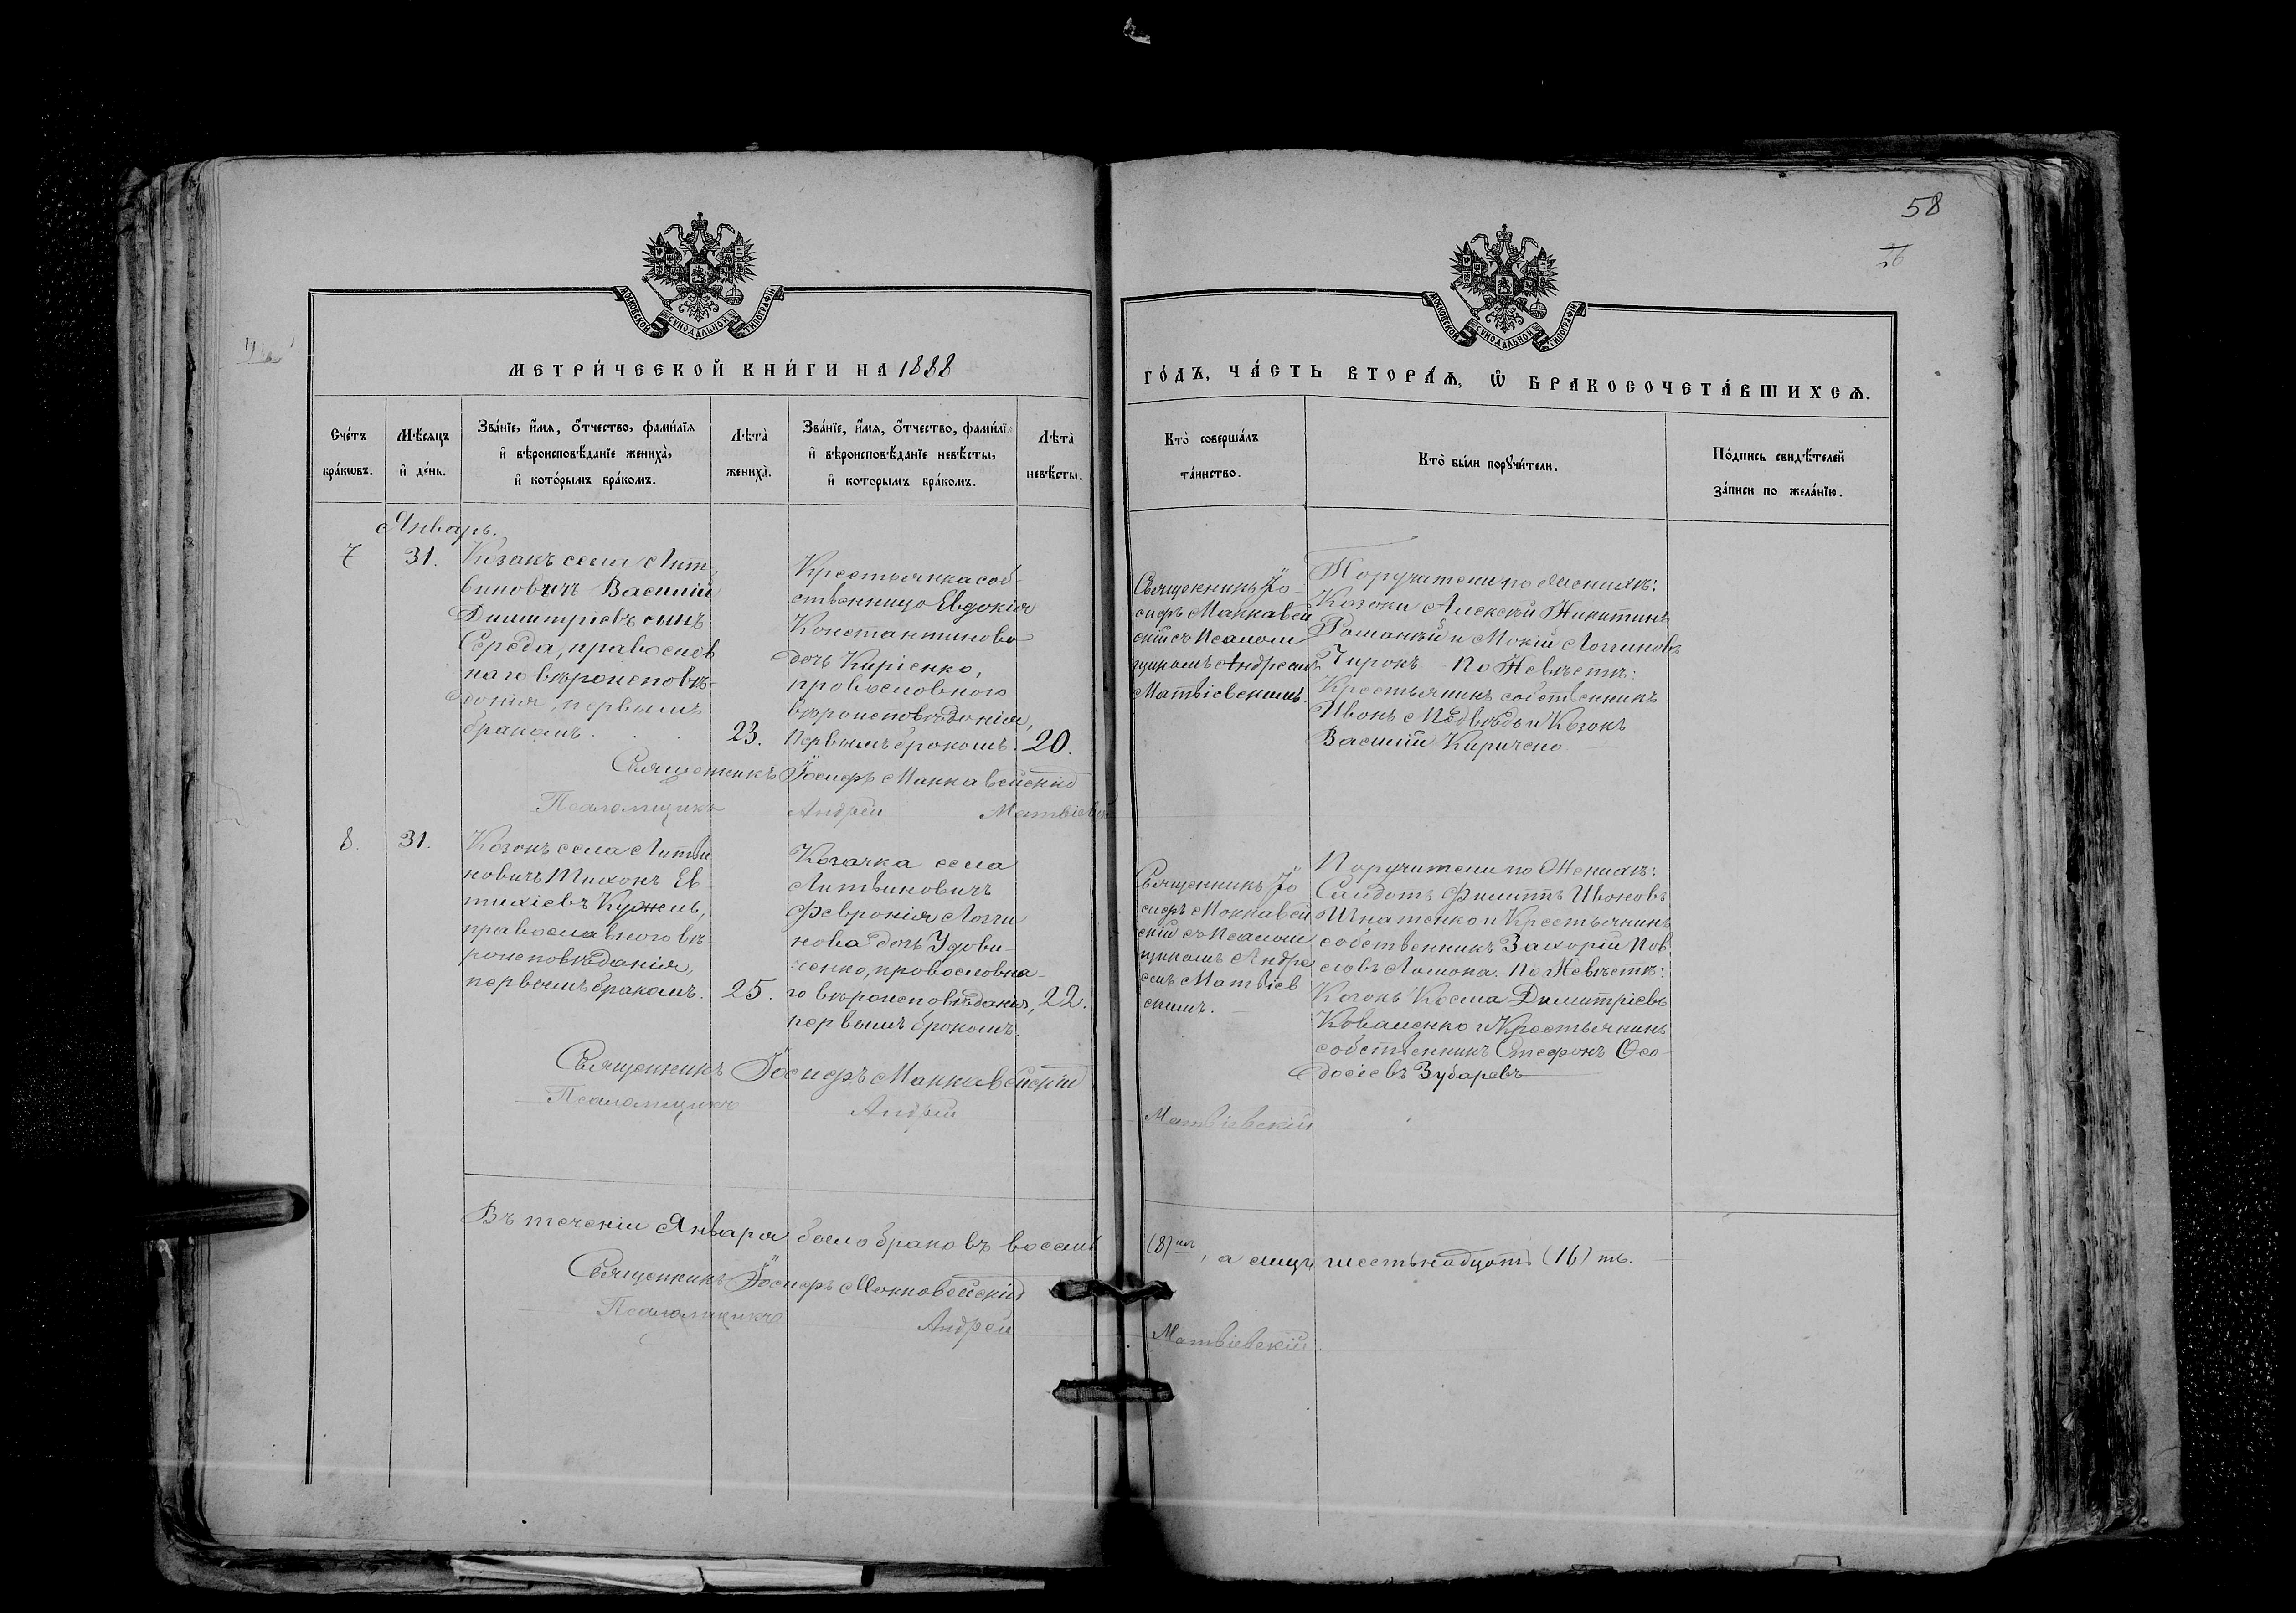 58
МОСКОВСКОЙ СУНОДАЛЬНОЙ ТИПОГРАФІИ
МОСКОВСКОЙ СУНОДАЛЬНОЙ ТИПОГРАФІИ
МЕТРИ́ЧЕСКОЙ КНИ́ГИ НА 1888
ГО́ДЪ, ЧА́СТЬ ВТОРА́Ѧ, Ѡ БРАКОСОЧЕТА́ВШИХСѦ.
Сче́тъ
бра́кѡвъ.
Мѣ́сяцъ
и де́нь.
Зва́нїе, и҆́мя, ѻ҆́тчество, фами́лїя
и҆ вѣроисповѣ́данїе жениха̀,
и҆ кото́рымъ бра́комъ.
Лѣта̀
жениха̀.
Зва́нїе, и҆́мя, ѻ҆́тчество, фами́лїя
и҆ вѣроисповѣ́данїе невѣ́сты,
и҆ которымъ бра́комъ.
Лѣта̀
невѣ́сты.
Кто̀ соверша́лъ
та́инство.
Кто̀ бы́ли порꙋчи́тели.
По́дпись свидѣ́телей
за́писи по жела́нїю.
Январь.
7
31.
Козакъ села Лит-
виновичъ Василій
Димитріевъ сынъ
Середа, православ
наго вѣроисповѣ-
данія, первымъ
бракомъ.
23.
Крестьянка соб-
ственница Евдокія
Константинова
дочь Кирієнко,
православного
вѣроисповѣданія,
первымъ бракомъ.
20.
Священникъ Іо-
сифъ Маккавей
скій съ псалом
щикомъ Андреемъ
Матвіевскимъ.
Поручители по Женихѣ:
Козаки Алексѣй Никитинъ
и Мокій Логгиновъ
Чирокъ По Невѣстѣ:
Крестьянинъ собственникъ
Иванъ Мѣдвѣдь и Козакъ
Василій
Священникъ Іосифъ Маккавейскій
Псаломщикъ Андрей Матвіевскій
8.
31.
Козакъ села Литви
новичъ Тихонъ Ев
тихіевъ Кужель,
православного вѣ
роисповѣданія,
первымъ бракомъ.
25.
Козачка села
Литвиновичъ
Февронія Логги
нова дочь Удови-
ченко, православна-
го вѣроисповѣданія,
первымъ бракомъ.
22.
Священникъ Іо
сифъ Маккавей
скій съ псалом
щикомъ Андре
емъ Матвіев
скимъ.
Поручители по Женихѣ:
Салдатъ Филиппъ Ивановъ
Игнатенко и Крестьянинъ
собственникъ Захарій Пав
ловъ Ломака. По Невѣстѣ:
Козакъ Косма Димитріевъ
Коваленко и Крестьянинъ
собственникъ Стефанъ Ѳео-
досіевъ Зубаревъ
Священникъ Іосифъ Маккавейскій
Псаломщикъ Андрей Матвіевскій
Въ теченіи Января было браковъ восемь (8)мь, а лицъ шестьнадцать (16) ть.
Священникъ Іосифъ Маккавейскій
Псаломщикъ Андрей Матвіевскій